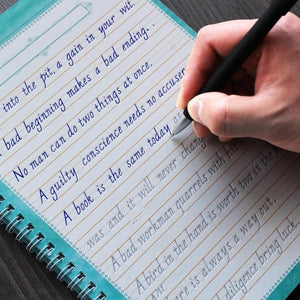 into the pit, a gain in your wit.
bad beginning makes a bad ending...
No man can do two things at once.
A guilty conscience needs no accuser
A book is the same today as
was, and it will never change
A bad workman quarrels with his
A bird in the hand is worth two in the
is always a way out.
diligence bring luck.